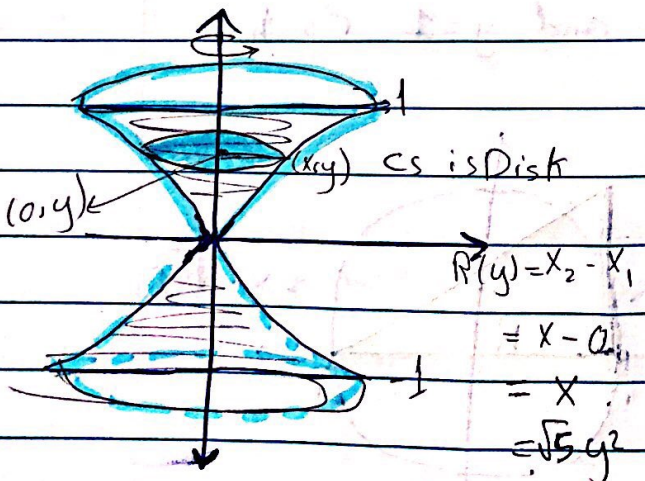 1
(x,y) cs is Disk
(0,y)
R(y) = x₂ - x₁
= x - 0
-1
= x
= √5 y²